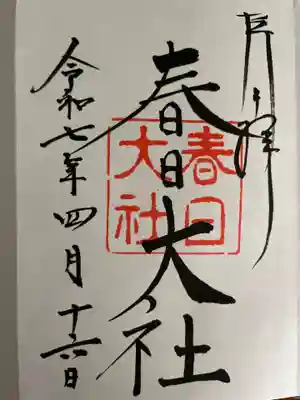 奉拝
春日大社
春日大社
令和七年四月十六日